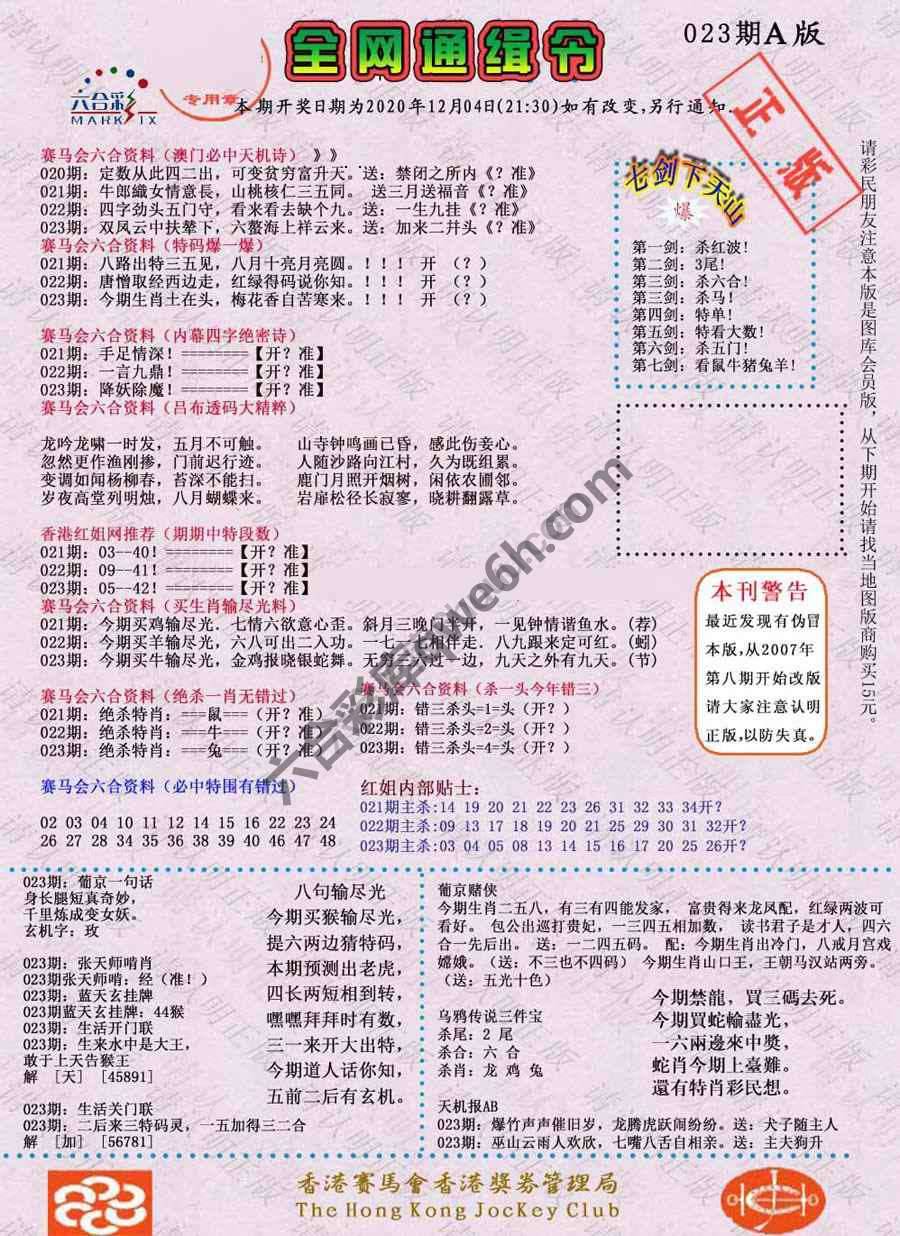 全网通缉令
023期A版
六合彩
MARK SIX
专用章
本期开奖日期为2020年12月04日(21:30)如有改变,另行通知.
正版
赛马会六合资料（澳门必中天机诗）》》
020期: 定数从此四二出，可变贫穷富升天．送: 禁闭之所内《？准》
021期: 牛郎織女情意長，山桃核仁三五同。 送三月送福音《？准》
022期: 四字劲头五门守，看来看去缺个九。送: 一生九挂《？准》
023期: 双凤云中扶辇下，六螯海上祥云来。送: 加来二井头《？准》
赛马会六合资料（特码爆一爆）
021期: 八路出特三五见，八月十亮月亮圆。！！！ 开 （？）
022期: 唐僧取经西边走，红绿得码说你知。！！！ 开 （？）
023期: 今期生肖土在头，梅花香自苦寒来。！！！ 开 （？）
赛马会六合资料（内幕四字绝密诗）
021期: 手足情深！========【开？准】
022期: 一言九鼎！========【开？准】
023期: 降妖除魔！========【开？准】
赛马会六合资料（吕布透码大精粹）
龙吟龙啸一时发，五月不可触。 山寺钟鸣画已昏，感此伤妾心。
忽然更作渔刚掺，门前迟行迹。 人随沙路向江村，久为既组累。
变调如闻杨柳春，苔深不能扫。 鹿门月照开烟树，闲依农圃邻。
岁夜高堂列明烛，八月蝴蝶来。 岩扉松径长寂寥，晓耕翻露草。
香港红姐网推荐（期期中特段数）
021期: 03--40！========【开？准】
022期: 09--41！========【开？准】
023期: 05--42！========【开？准】
赛马会六合资料（买生肖输尽光料）
021期: 今期买鸡输尽光．七情六欲意心歪。斜月三晚门半开，一见钟情谐鱼水。(荐)
022期: 今期买羊输尽光，六八可出二入功。一七一七相伴走．八九跟来定可红。(蚓)
023期: 今期买牛输尽光，金鸡报晓银蛇舞。无穷三六过一边，九天之外有九天。(节)
赛马会六合资料（绝杀一肖无错过）
021期: 绝杀特肖: ===鼠===（开？准）
022期: 绝杀特肖: ===牛===（开？准）
023期: 绝杀特肖: ===兔===（开？准）
赛马会六合资料（杀一头今年错三）
021期: 错三杀头=1=头（开？）
022期: 错三杀头=2=头（开？）
023期: 错三杀头=4=头（开？）
赛马会六合资料（必中特围有错过）
02 03 04 10 11 12 14 15 16 22 23 24
26 27 28 34 35 36 38 39 40 46 47 48
红姐内部贴士:
021期主杀:14 19 20 21 22 23 26 31 32 33 34开？
022期主杀:09 13 17 18 19 20 21 25 29 30 31 32开？
023期主杀:03 04 05 08 13 14 15 16 17 20 25 26开？
七剑下天山
爆
第一剑: 杀红波！
第二剑: 3尾！
第三剑: 杀六合！
第三剑: 杀马！
第四剑: 特单！
第五剑: 特看大数！
第六剑: 杀五门！
第七剑: 看鼠牛猪兔羊！
请彩民朋友注意本版是图库会员版，从下期开始请找当地图版商购买15元。
本刊警告
最近发现有伪冒
本版,从2007年
第八期开始改版
请大家注意认明
正版,以防失真。
六合彩库qwe6h.com
023期: 葡京一句话
身长腿短真奇妙，
千里炼成变女妖。
玄机字: 玫
023期: 张天师啃肖
023期张天师啃: 经（准！）
023期: 蓝天玄挂牌
023期蓝天玄挂牌: 44猴
023期: 生活开门联
023期: 生来水中是大王，
敢于上天告猴王
解 [天] [45891]
023期: 生活关门联
023期: 二后来三特码灵，一五加得三二合
解 [加] [56781]
八句输尽光
今期买猴输尽光，
提六两边猜特码，
本期预测出老虎，
四长两短相到转，
嘿嘿拜拜时有数，
三一来开大出特，
今期道人话你知，
五前二后有玄机。
葡京赌侠
今期生肖二五八，有三有四能发家， 富贵得来龙凤配，红绿两波可
看好。 包公出巡打贵妃，一三四五相加数， 读书君子是才人，四六
合一先后出。 送: 一二四五码。 配: 今期生肖出冷门，八戒月宫戏
嫦娥。（送: 不三也不四码） 今期生肖山口王，王朝马汉站两旁。
（送: 五光十色）
乌鸦传说三件宝
杀尾: 2 尾
杀合: 六 合
杀肖: 龙 鸡 兔
今期禁龍，買三碼去死。
今期買蛇輸盡光，
一六兩邊來中獎，
蛇肖今期上臺難。
還有特肖彩民想。
天机报AB
023期: 爆竹声声催旧岁，龙腾虎跃闹纷纷。送: 犬子随主人
023期: 巫山云雨人欢欣，七嘴八舌自相亲。送: 主夫狗升
香港賽馬會香港獎券管理局
The Hong Kong JocKey Club